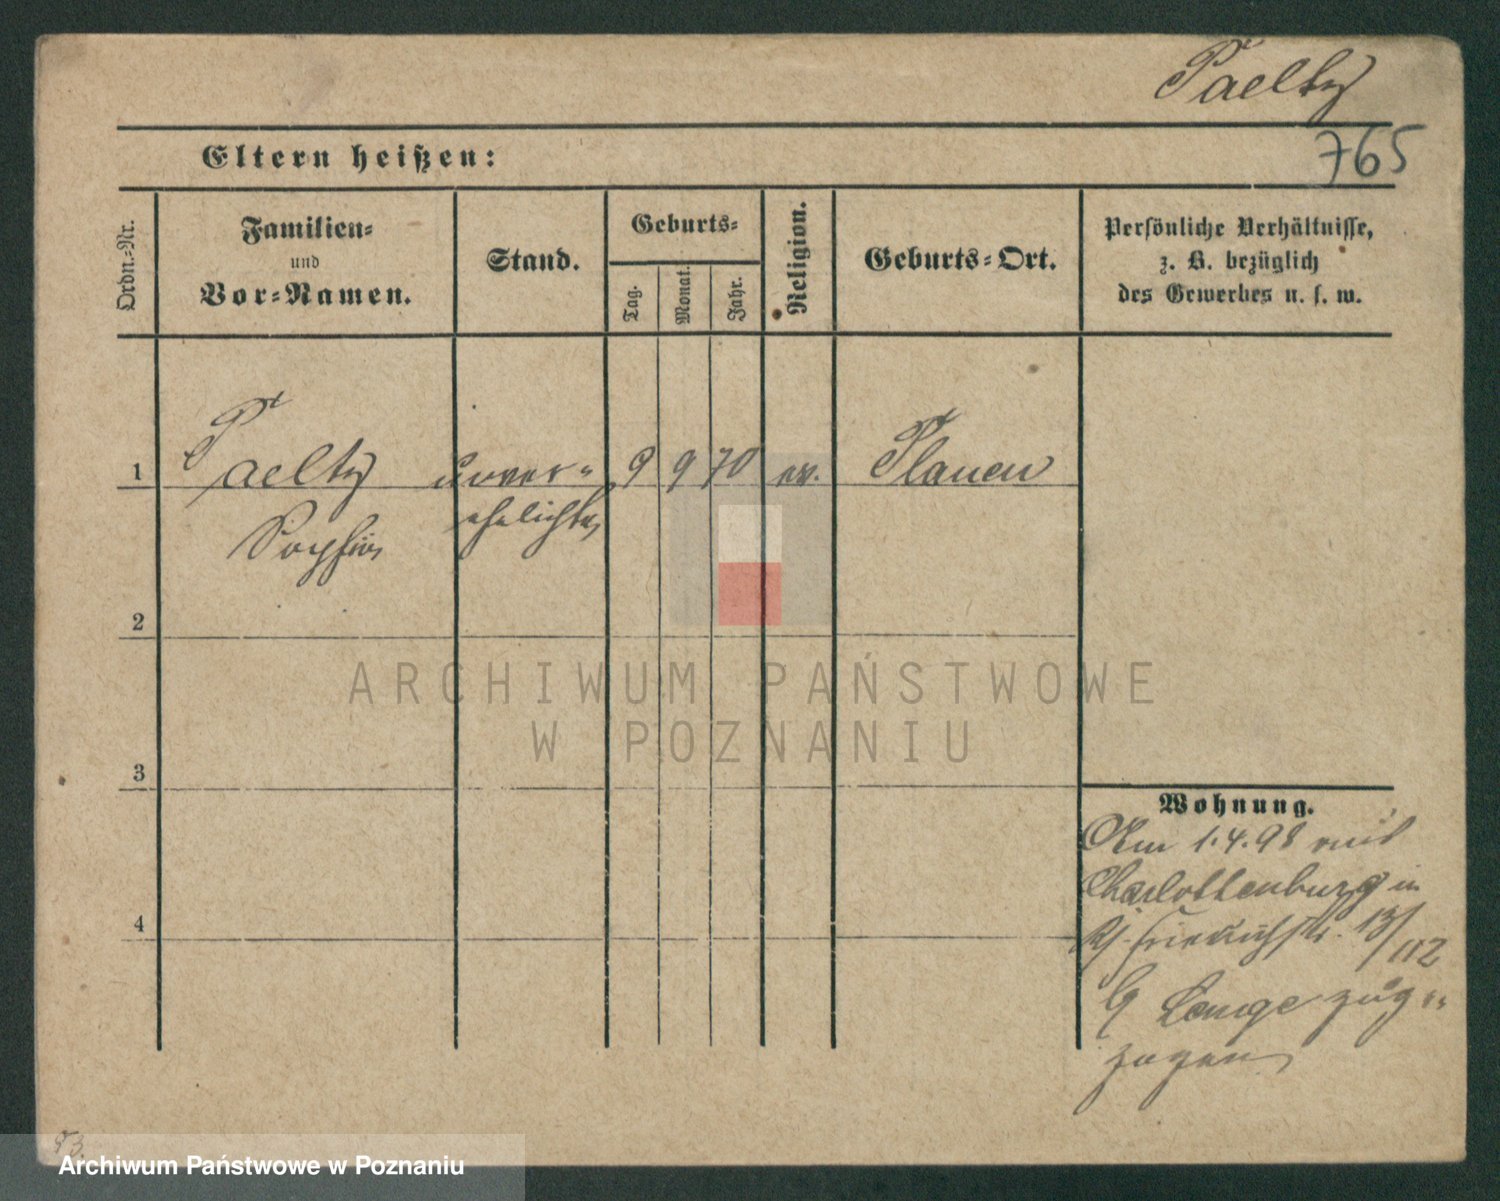 Paeltz
765
Eltern heißen:
Ordn.-Nr.
Familien-
und
Vor-Namen.
Stand.
Geburts-
Tag.
Monat.
Jahr.
Religion.
Geburts-Ort.
Persönliche Verhältnisse,
z. B. bezüglich
des Gewerbes u. s. w.
1 Paeltz unver- 9 9 70 ev. Plauen
Sophie ehelichte
2
ARCHIWUM PAŃSTWOWE
W POZNANIU
3
Wohnung.
Am 1.4.98 aus
Charlottenburg in
Friedrichstr. 13/
112
Lange zuge-
zogen
4
53
Archiwum Państwowe w Poznaniu